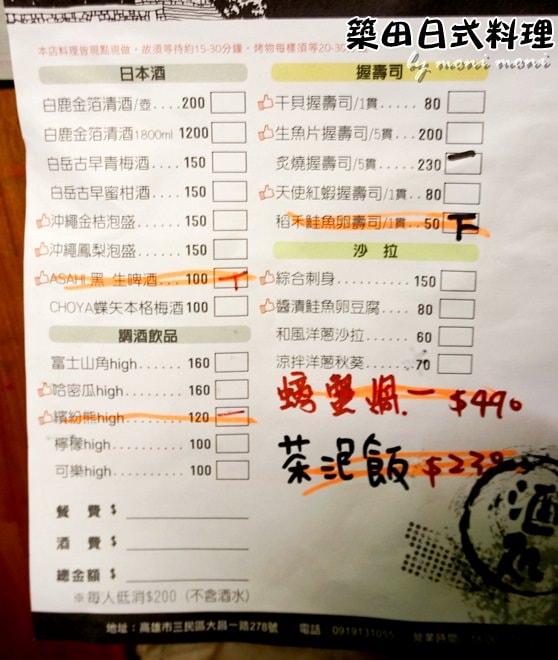 築田日式料理
by moni moni
本店料理皆現點現做，故須等待約15-30分鐘，烤物每樣須等20-30
日本酒
白鹿金箔清酒/壺....200
白鹿金箔清酒1800ml 1200
白岳古早青梅酒....150
白岳古早蜜柑酒....150
沖繩金桔泡盛......150
沖繩鳳梨泡盛......150
ASAHI 黑 生啤酒...100
CHOYA蝶矢本格梅酒100
調酒飲品
富士山角high......160
哈密瓜high........160
繽紛熊high........120
檸檬high..........100
可樂high..........100
餐 費 $
酒 費 $
總金額 $
※每人低消$200 (不含酒水)
握壽司
干貝握壽司/1貫....80
生魚片握壽司/5貫...200
炙燒握壽司/5貫....230 一
天使紅蝦握壽司/1貫..80
稻禾鮭魚卵壽司/1貫..50 下
沙 拉
綜合刺身..........150
醬漬鮭魚卵豆腐....80
和風洋蔥沙拉......60
涼拌洋蔥秋葵......70
螃蟹鍋.一 $490
茶泥飯 $230
地址：高雄市三民區大昌一路278號 電話 0919131055 營業時間